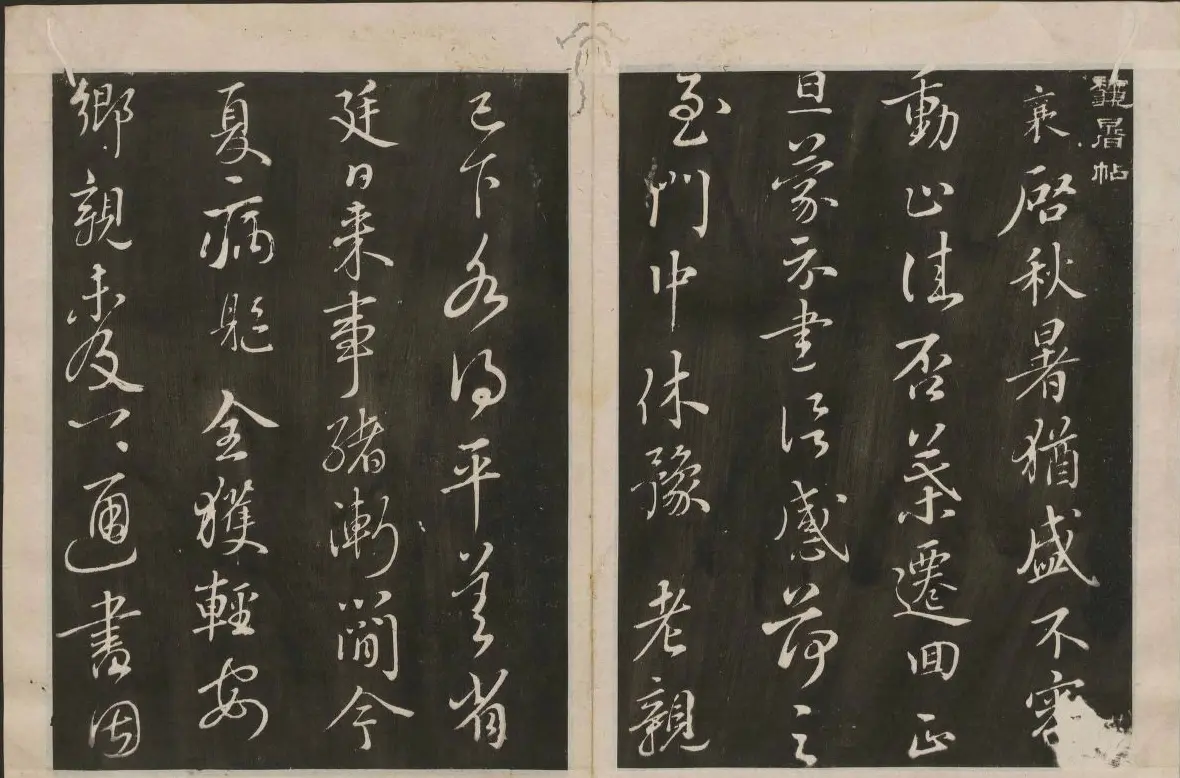 龝暑帖
襄啓秋暑猶盛不審
動止佳否葉遷回正
旦蒙示書信感荷之
至門中休豫老親
已下各得平善省
廷日来事緒漸簡今
夏病軀全獲輕安
鄉親未及一一通書因